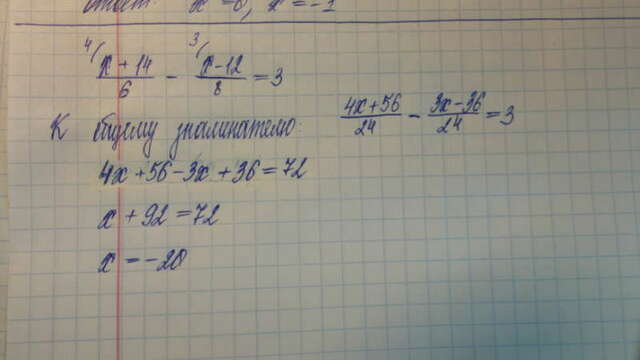 Ответ: x = 0, x = -1
4/ x + 14 / 6 - 3/ x - 12 / 8 = 3
К общему знаминателю: 4x + 56 / 24 - 3x - 36 / 24 = 3
4x + 56 - 3x + 36 = 72
x + 92 = 72
x = -20